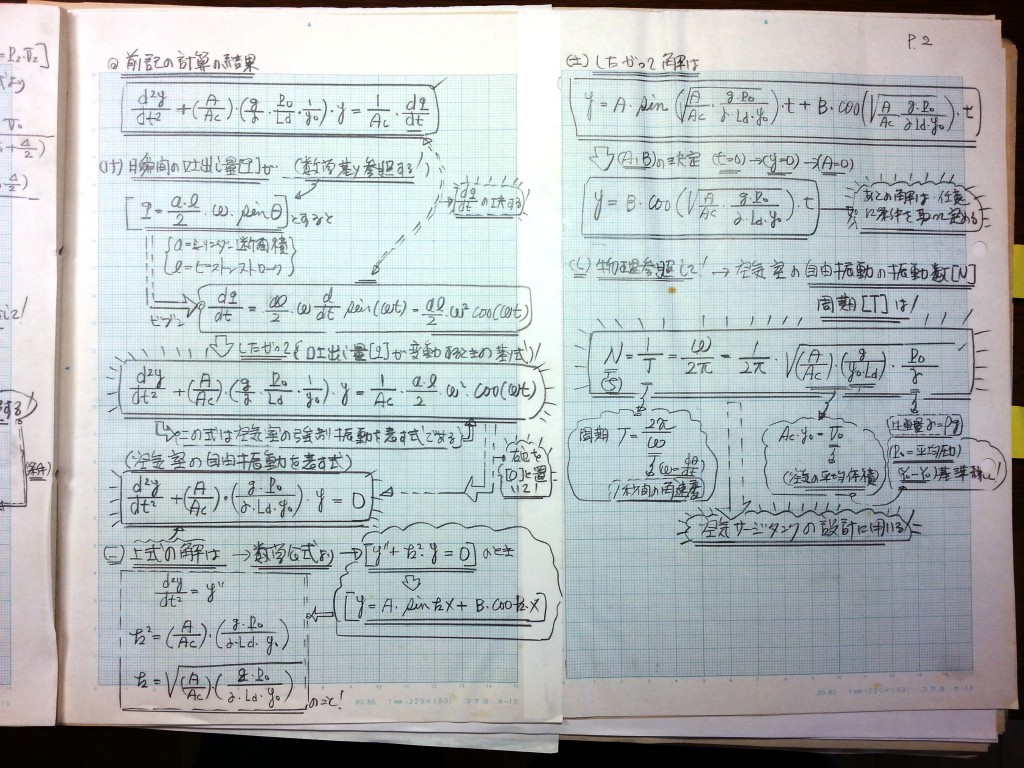 =P₂·V₂]
より
◎ 前記の計算の結果
d²y/dt² + (A/Ac)·(g/γ · P₀/Ld · 1/y₀)·y = 1/Ac · dq/dt
瞬間の吐出し量[q]が (数学基y参照する)!
[ q = a·l/2 · ω· sinθ とすると
dq/dt の工夫する
{ a = シリンダ断面積
l = ピストンストローク }
dq/dt = al/2 · ω d/dt sin(ωt) = al/2 · ω² cos(ωt)
したがって {吐出し量[q]が変動するときの基本式}!
d²y/dt² + (A/Ac)·(g/γ · P₀/Ld · 1/y₀)·y = 1/Ac · a·l/2 ω²·cos(ωt)
この式は空気室の強制振動を表す式である
(空気室の自由振動を表す式)
右辺を
[0]と置
いて!
d²y/dt² + (A/Ac)·(g·P₀/γ·Ld·y₀)·y = 0
(ニ) 上式の解は → 数学公式より → [y″ + k²·y = 0] のとき
d²y/dt² = y″
[y = A· sin kx + B· cos k·x]
k² = (A/Ac)·(g·P₀/γ·Ld·y₀)
k = √(A/Ac)(g·P₀/γ·Ld·y₀) のこと!
P.2
したがって解は
y = A· sin(√A/Ac · g·P₀/γ·Ld·y₀)·t + B·cos(√A/Ac · g·P₀/γ·Ld·y₀)·t
(A,B)の決定 (t=0)→(y=0)→(A=0)
y = B·cos(√A/Ac · g·P₀/γ·Ld·y₀)·t
あとの解は·任意
に条件を取って定める
物理参照して! → 空気室の自由振動の振動数[N]
周期[T]は!
N = 1/T = ω/2π = 1/2π · √(A/Ac)·(g/y₀·Ld)· P₀/γ
周期 T = 2π/ω
(ω = dθ/dt)
1秒間の角速度
Ac·y₀ = V₀
(空気の平均体積)
比重量 γ = ρg
(P₀=平均圧力)
空気サージタンクの設計に用いる